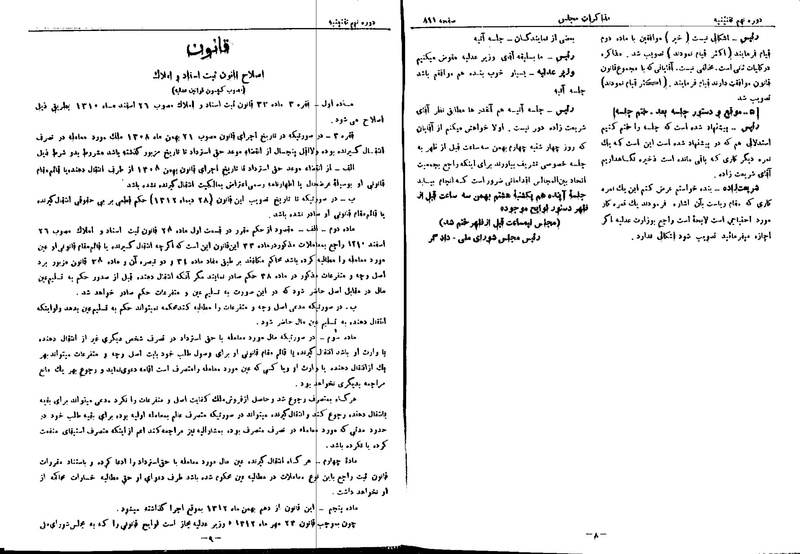 دوره نهم تقنینیه
مذاکرات مجلس
صفحه ۸۹۱
رئیس ـ اشکالی نیست ( خیر ) موافقین با ماده دوم
قیام فرمایند ( اکثر قیام نمودند ) تصویب شد . مذاکره
در کلیات ثانی است. مخالفی نیست. آقایانی که با مجموع قانون
موافقت دارند قیام فرمایند . ( اکثر قیام نمودند )
تصویب شد
[ ۵ ـ موقع و دستور جلسه بعد ـ ختم جلسه ]
رئیس ـ پیشنهاد شده است که جلسه را ختم کنیم
استدلالی هم که در پیشنهاد شده است این است که یک
نمره دیگر کاری که باقی مانده است ذخیره نگاهداریم
آقای شریعت زاده .
شریعت زاده ـ بنده خواستم عرض کنم این یک نمره
کاری که مقام ریاست بآن اشاره فرمودند یک نمره کار
مورد احتیاجی است لایحهٔ است راجع بوزارت عدلیه اگر
اجازه میفرمائید تصویب شود اشکالی ندارد .
بعضی از نمایندگان ـ جلسه آتیه
رئیس ـ ما بسابقه آقای وزیر عدلیه مفوض میکنیم
وزیر عدلیه ـ بسیار خوب بنده هم موافقم باشد
جلسه آتیه
رئیس ـ جلسه آتیه هم آنقدر ها مطابق نظر آقای
شریعت زاده دور نیست . اولا خواهش میکنم از آقایان
که روز چهار شنبه چهارم بهمن سه ساعت قبل از ظهر به
جلسه خصوصی تشریف بیاورند برای اینکه راجع بجمعیت
اتحاد بین المجالس اقداماتی ضرور است که انجام بیابد
جلسه آینده هم یکشنبهٔ هشتم بهمن سه ساعت قبل از
ظهر دستور لوایح موجوده
(مجلس نیمساعت قبل از ظهر ختم شد)
رئیس مجلس شورای ملی ـ دادگر
ـ ۸ ـ
دوره نهم تقنینیه
قانون
اصلاح قانون ثبت اسناد و املاک
(مصوب کمیسیون قوانین عدلیه)
ماده اول ـ فقره ۳ ماده ۳۳ قانون ثبت اسناد و املاک مصوب ۲۶ اسفند ماه ۱۳۱۰ بطریق ذیل
اصلاح می شود .
فقره ۳ ـ در صورتیکه در تاریخ اجرای قانون مصوب ۲۱ بهمن ماه ۱۳۰۸ ملک مورد معامله در تصرف
انتقال گیرنده بوده ولااقل پنجسال از انقضاء موعد حق استرداد تا تاریخ مزبور گذشته باشد مشروط بدو شرط ذیل
الف ـ از انقضاء موعد حق استرداد تا تاریخ اجرای قانون بهمن ۱۳۰۸ از طرف انتقال دهنده یا قائم مقام
قانونی او بوسیلهٔ عرضحال یا اظهارنامه رسمی اعتراض بمالکیت انتقال گیرنده نشده باشد
ب ـ در صورتیکه تا تاریخ تصویب این قانون (۲۸ دیماه ۱۳۱۲) حکم قطعی بر بی حقوقی انتقال گیرنده
یا قائم مقام قانونی او صادر نشده باشد .
ماده دوم ـ الف ـ مقصود از حکم مقرر در قسمت اول ماده ۳۴ قانون ثبت اسناد و املاک مصوب ۲۶
اسفند ۱۳۱۰ راجع بمعاملات مذکور در ماده ۳۳ این قانون این است که اگر چه انتقال گیرنده یا قائم مقام قانونی او عین
مورد معامله را مطالبه کرده باشد محاکم مکلفند بر طبق مفاد ماده ۳۴ و دو تبصره آن و ماده ۳۸ قانون مزبور برد
اصل وجه و متفرعات مذکور در ماده ۳۸ حکم صادر نمایند مگر آنکه انتقال دهنده قبل از صدور حکم به تسلیم عین
مال در مقابل اصل حاضر شود که در این صورت به تسلیم عین و متفرعات حکم صادر خواهد شد .
ب ـ در صورتیکه مدعی اصل وجه و متفرعات را مطالبه کند محکمه نمیتواند حکم به تسلیم عین بدهد ولو اینکه
انتقال دهنده به تسلیم عین مال حاضر شود .
ماده سوم ـ در صورتیکه مال مورد معامله با حق استرداد در تصرف شخص دیگری غیر از انتقال دهنده
یا وارث او باشد انتقال گیرنده یا قائم مقام قانونی او برای وصول طلب خود بابت اصل وجه و متفرعات میتواند بهر
یک از انتقال دهنده یا وارث او ویا کسی که عین مورد معامله را متصرف است اقامه دعوی نماید و رجوع بهر یک مانع
مراجعه بدیگری نخواهد بود .
هرگاه بمتصرف رجوع شد و حاصل از فروش ملک کفایت اصل و متفرعات را نکرد مدعی میتواند برای بقیه
بانتقال دهنده رجوع کند و انتقال گیرنده میتواند در صورتیکه متصرف عالم بمعامله اولیه بوده برای بقیه طلب خود در
حدود مدتی که مورد معامله در تصرف متصرف بوده بمشارالیه نیز مراجعه کند اعم از اینکه متصرف استیفای منفعت
کرده یا نکرده باشد .
مادهٔ چهارم ـ هرگاه انتقال گیرنده عین مال مورد معامله با حق استرداد را ادعا کرده و باستناد مقررات
قانون ثبت راجع باین نوع معاملات در مطالبه عین محکوم شده باشد طرف دعوای او حق مطالبه خسارات محاکمه از
او نخواهد داشت .
ماده پنجم ـ این قانون از دهم بهمن ماه ۱۳۱۲ بموقع اجرا گذاشته میشود .
چون بموجب قانون ۲۳ مهر ماه ۱۳۱۲ « وزیر عدلیه مجاز است لوایح قانونی را که به مجلس شورای ملی
ـ ۹ ـ